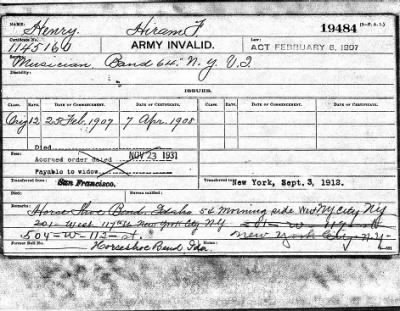 NAME: Henry, Hiram F. 19484 (3-P. A. 1.)
Certificate No. 1145160 ARMY INVALID. LAW: ACT FEBRUARY 6, 1907
Service: Musician, Band 64" N.Y. V.I.
Disability:
ISSUES.
CLASS. RATE. DATE OF COMMENCEMENT. DATE OF CERTIFICATE. CLASS. RATE. DATE OF COMMENCEMENT. DATE OF CERTIFICATE.
Orig 12 25 Feb. 1907 7 Apr. 1908
Died
Accrued order dated NOV 23 1931
Payable to widow
Transferred from: San Francisco. Transferred to: New York, Sept. 3, 1912.
Died: Bureau notified:
Remarks: Horse Shoe Bend, Idaho 54 Morning side NY City NY
201 West 117th New York City NY
504-W-112-St. New York City N.Y.
Former Roll No. Horseshoe Bend Ida.